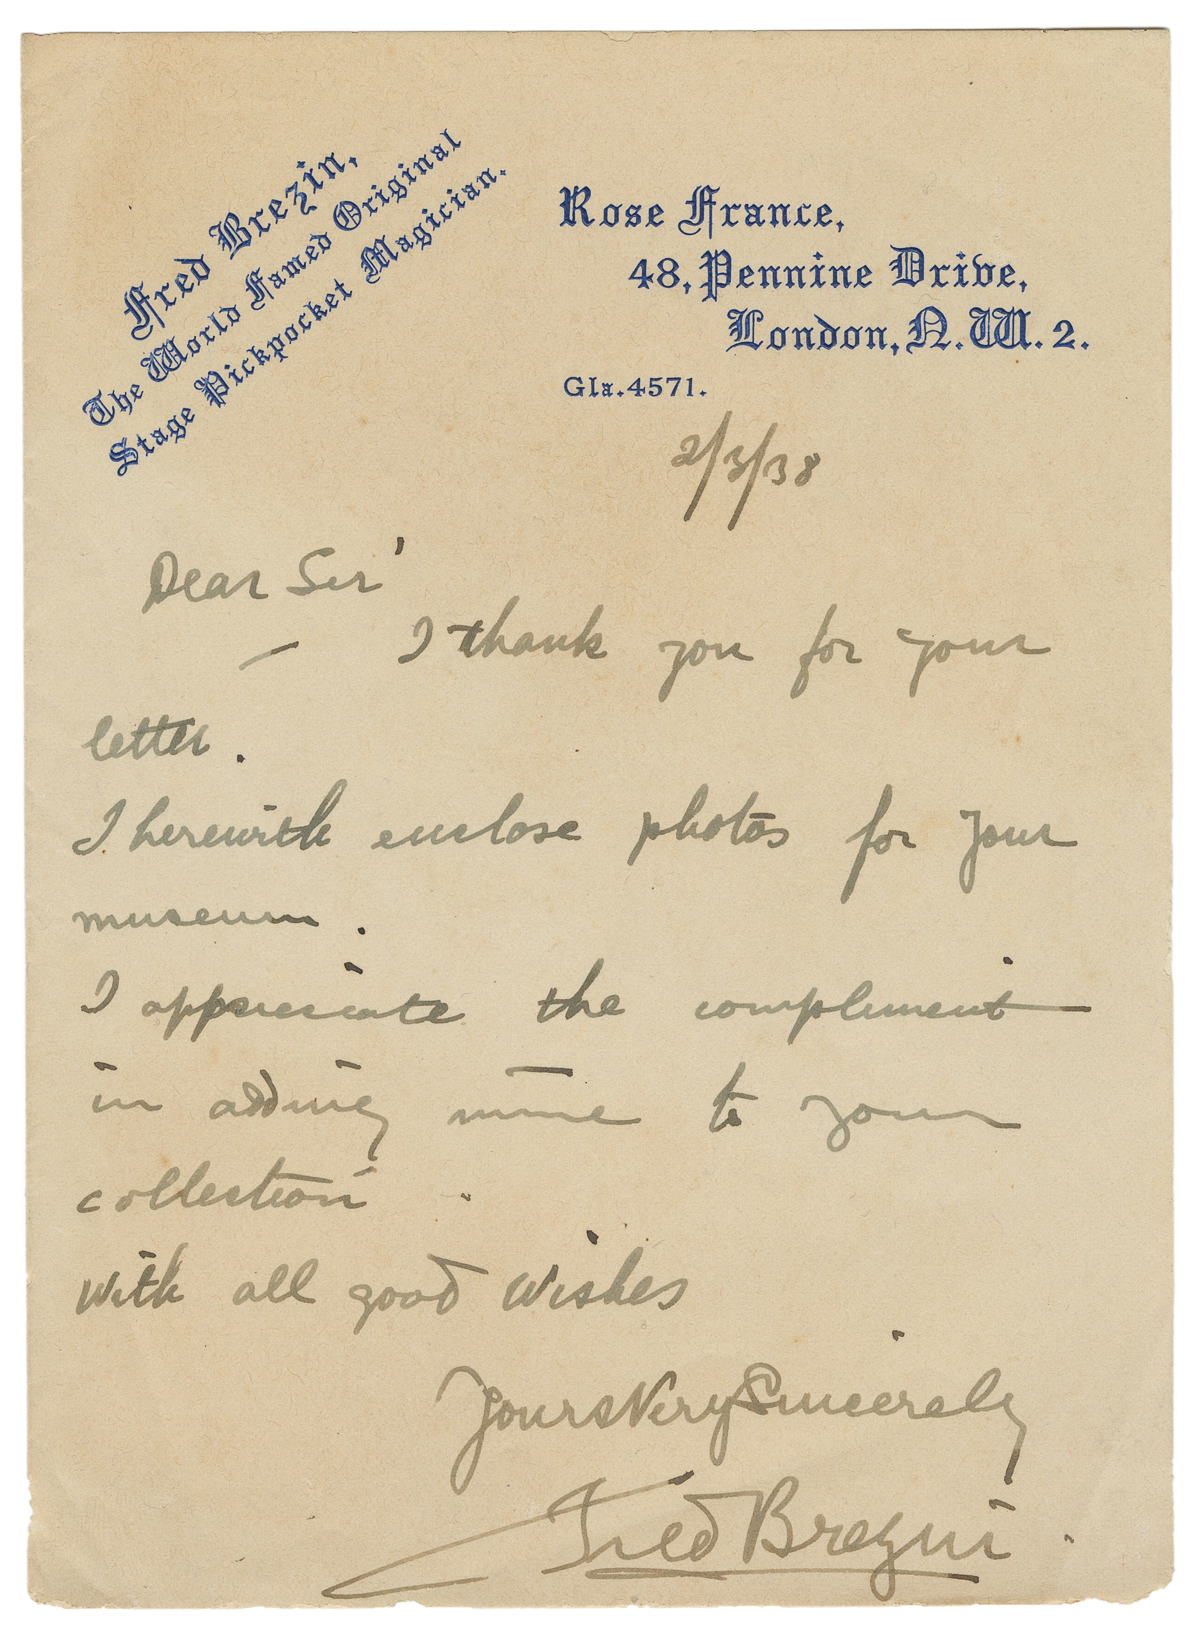 Fred Brezin,
The World Famed Original
Stage Pickpocket Magician.
Rose France,
48, Pennine Drive,
London, N.W. 2.
Gla. 4571.
2/3/38
Dear Sir'
I thank you for your
letter.
I herewith enclose photos for your
museum.
I appreciate the compliment
in adding mine to your
collection.
With all good wishes
Yours Very Sincerely
Fred Brezin.